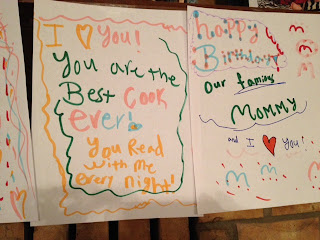 I ♡ You!
You are the
Best Cook
ever!
You Read
with me
every night!
happy
Birthday
Our famous
MOMMY
and I ♡ You!